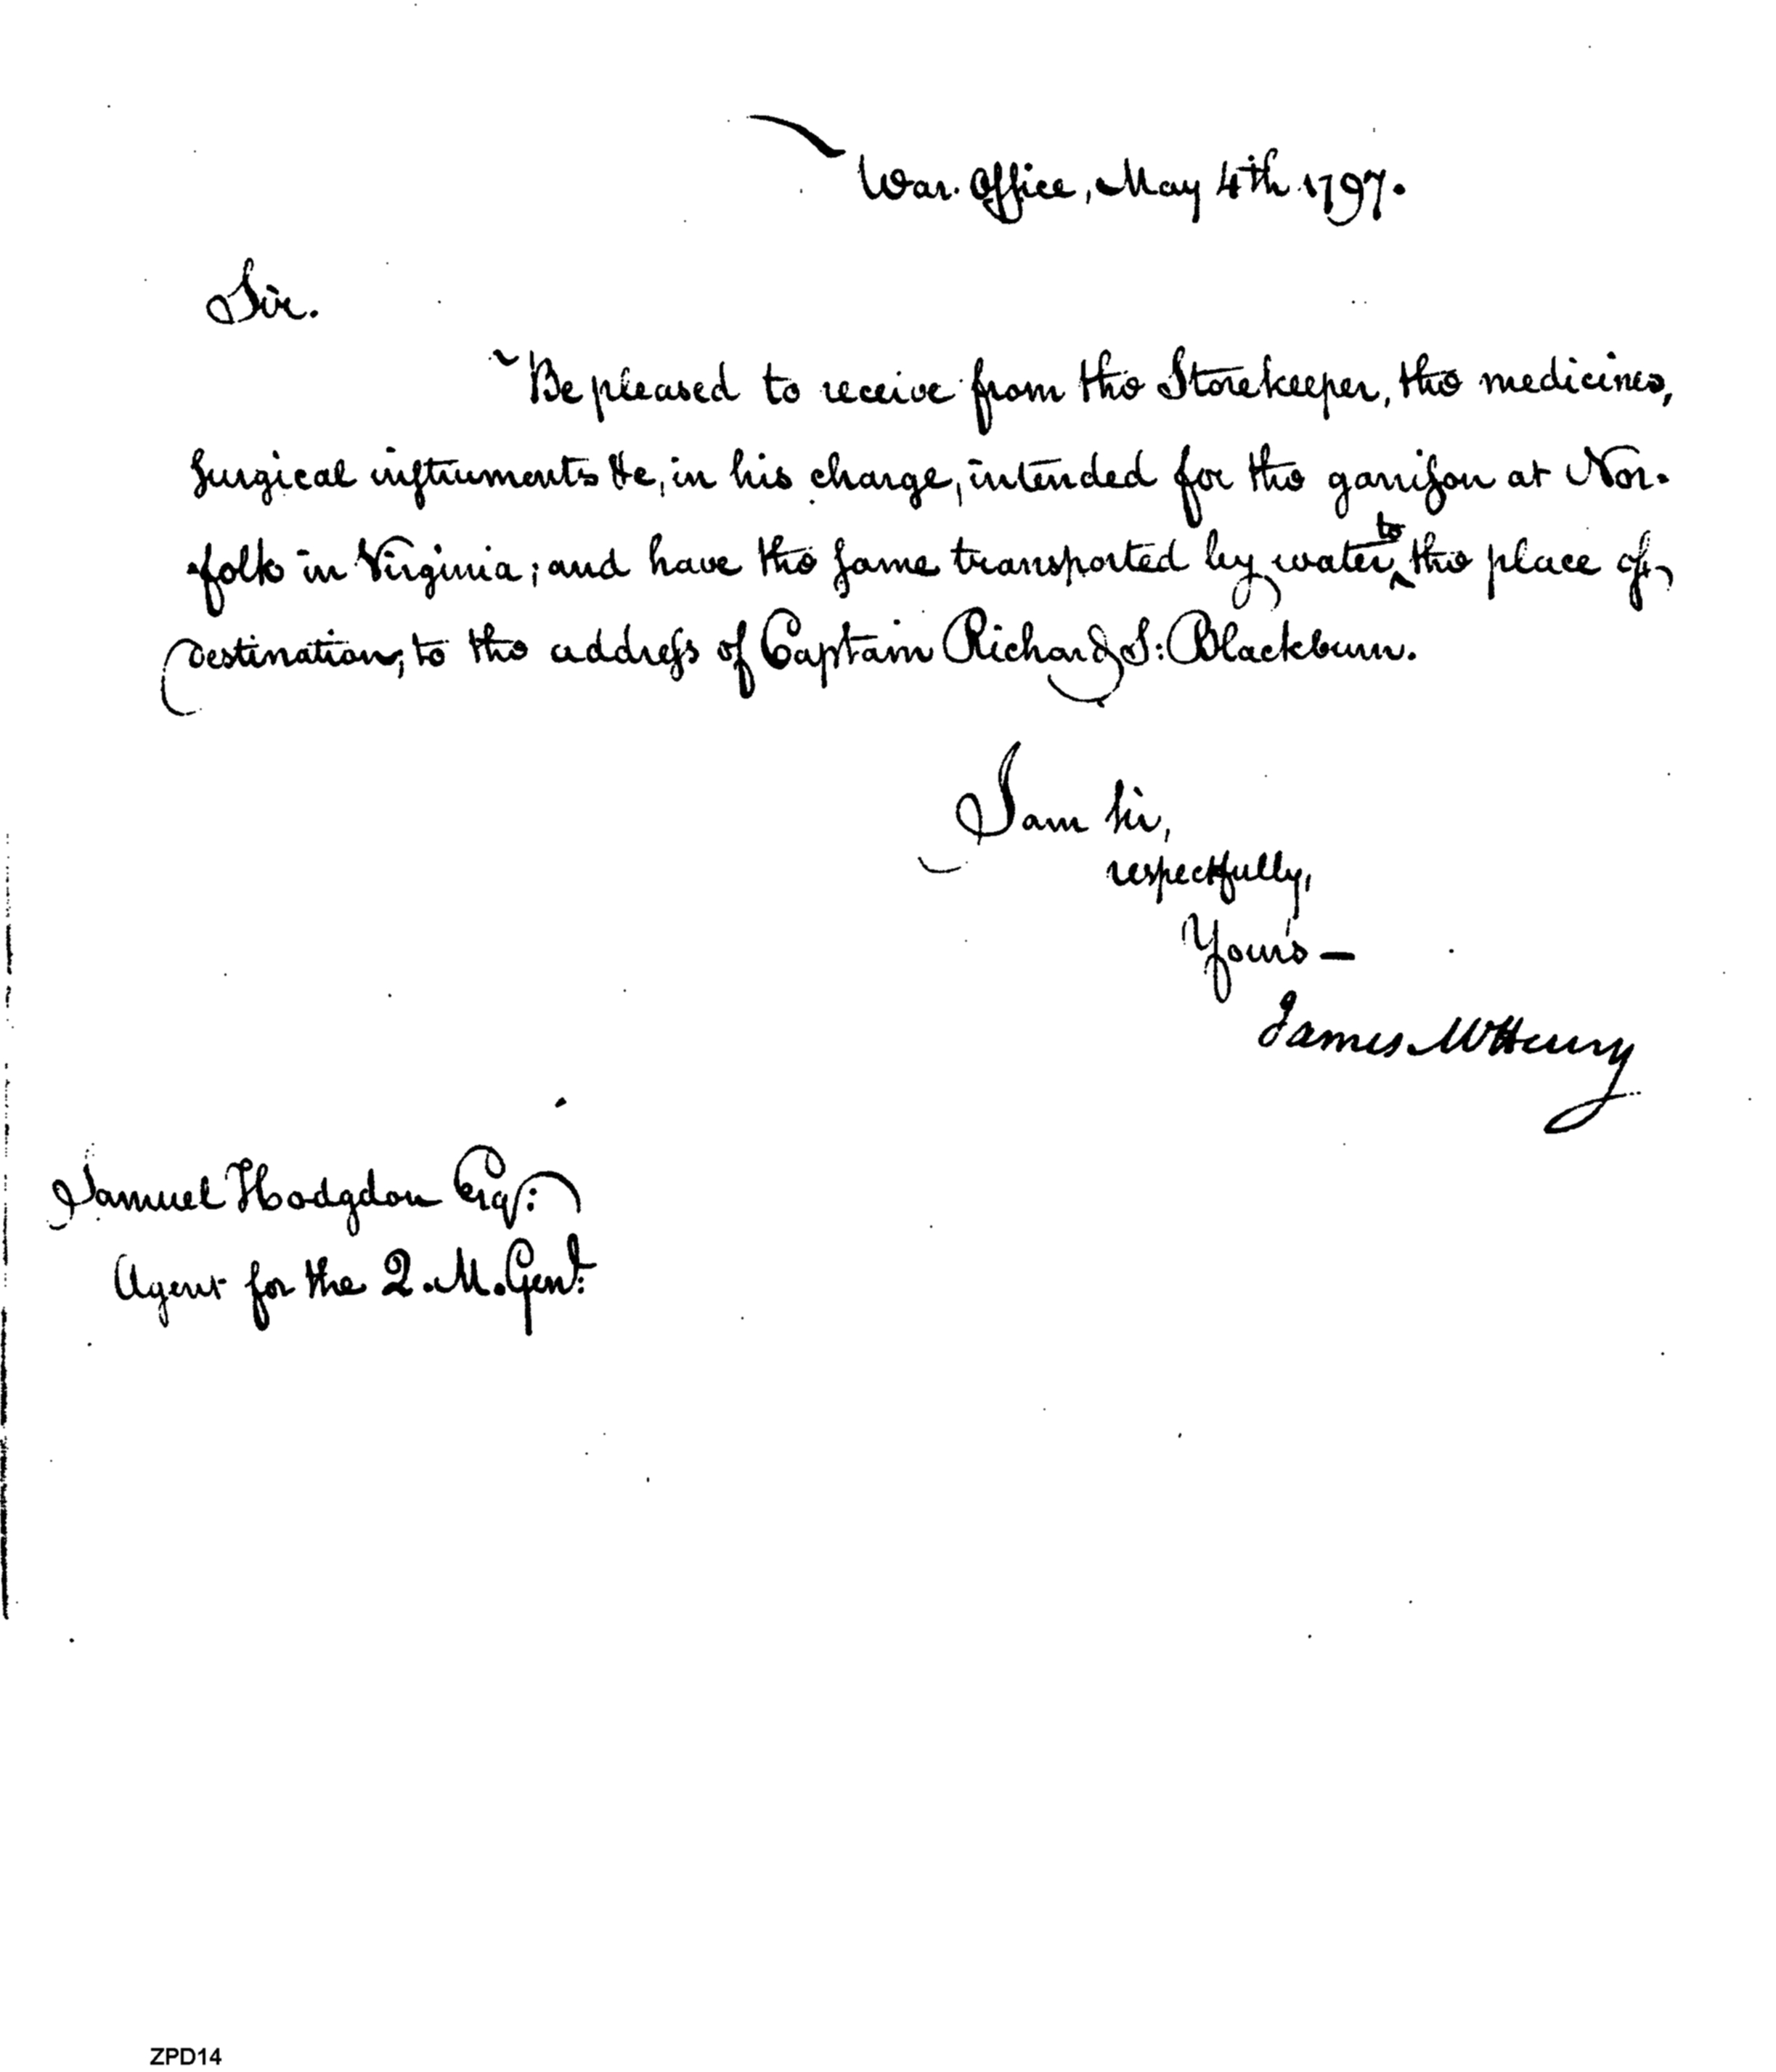 War Office, May 4th 1797.
Sir.
Be pleased to receive from the Storekeeper, the medicines,
surgical instruments &c, in his charge, intended for the garrison at Nor-
-folk in Virginia; and have the same transported by water ^to the place of
destination; to the address of Captain Richard S: Blackburn.
I am Sir,
respectfully,
Yours —
James McHenry
Samuel Hodgdon Esq:
Agent for the Q. M. Genl:
ZPD14